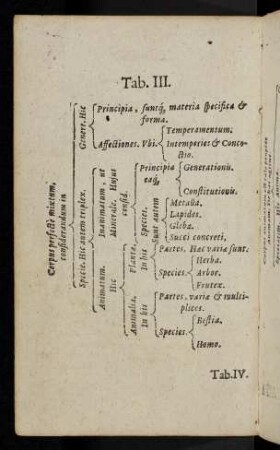 Tab. III.
Corpus perfectè mixtum,
considerandum in
Genere. Hic
Principia, suntq́; materia specifica &
forma.
Affectiones. Vbi.
Temperamentum.
Intemperies & Conco-
ctio.
Specie. Hic autem triplex.
Inanimatum, ut
Minerale. Hujus
consid.
Principia
eaq́;
Generationis.
Constitutionis.
Species.
Sunt autem
Metalla.
Lapides.
Glebæ.
Succi concreti.
Animatum.
Hic
Planta.
In his
Partes. Hæc variæ sunt.
Species.
Herba.
Arbor.
Frutex.
Animalia.
In his
Partes, variæ & multi-
plices.
Species.
Bestia.
Homo.
Tab. IV.